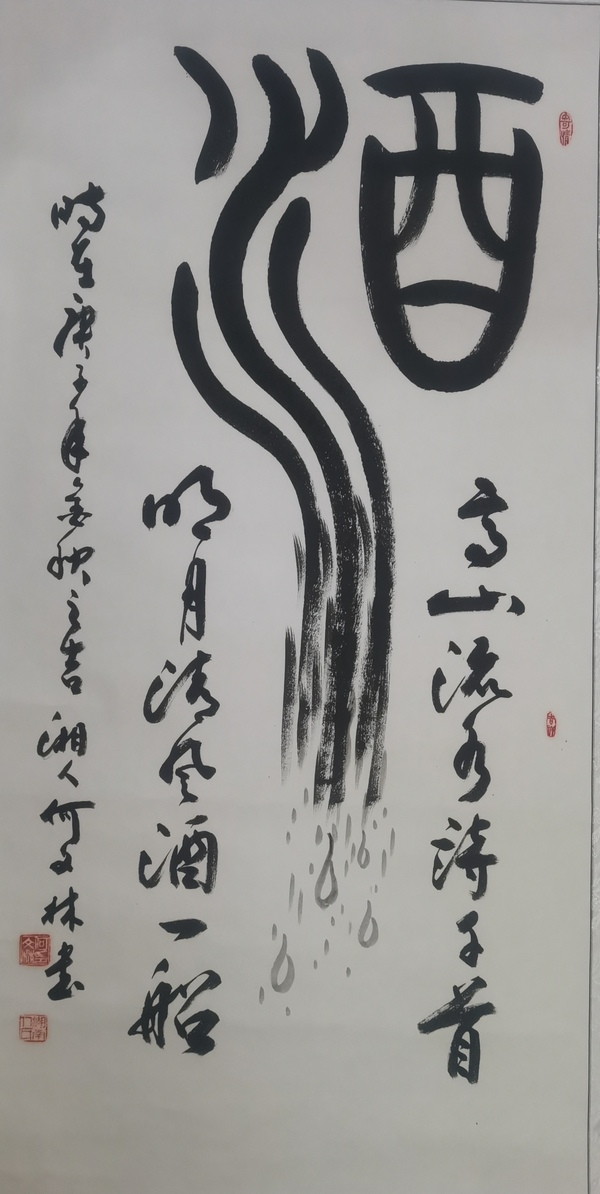 酒
高山流水诗千首
明月清风酒一船
时在庚子年金秋之吉湘人何文林书